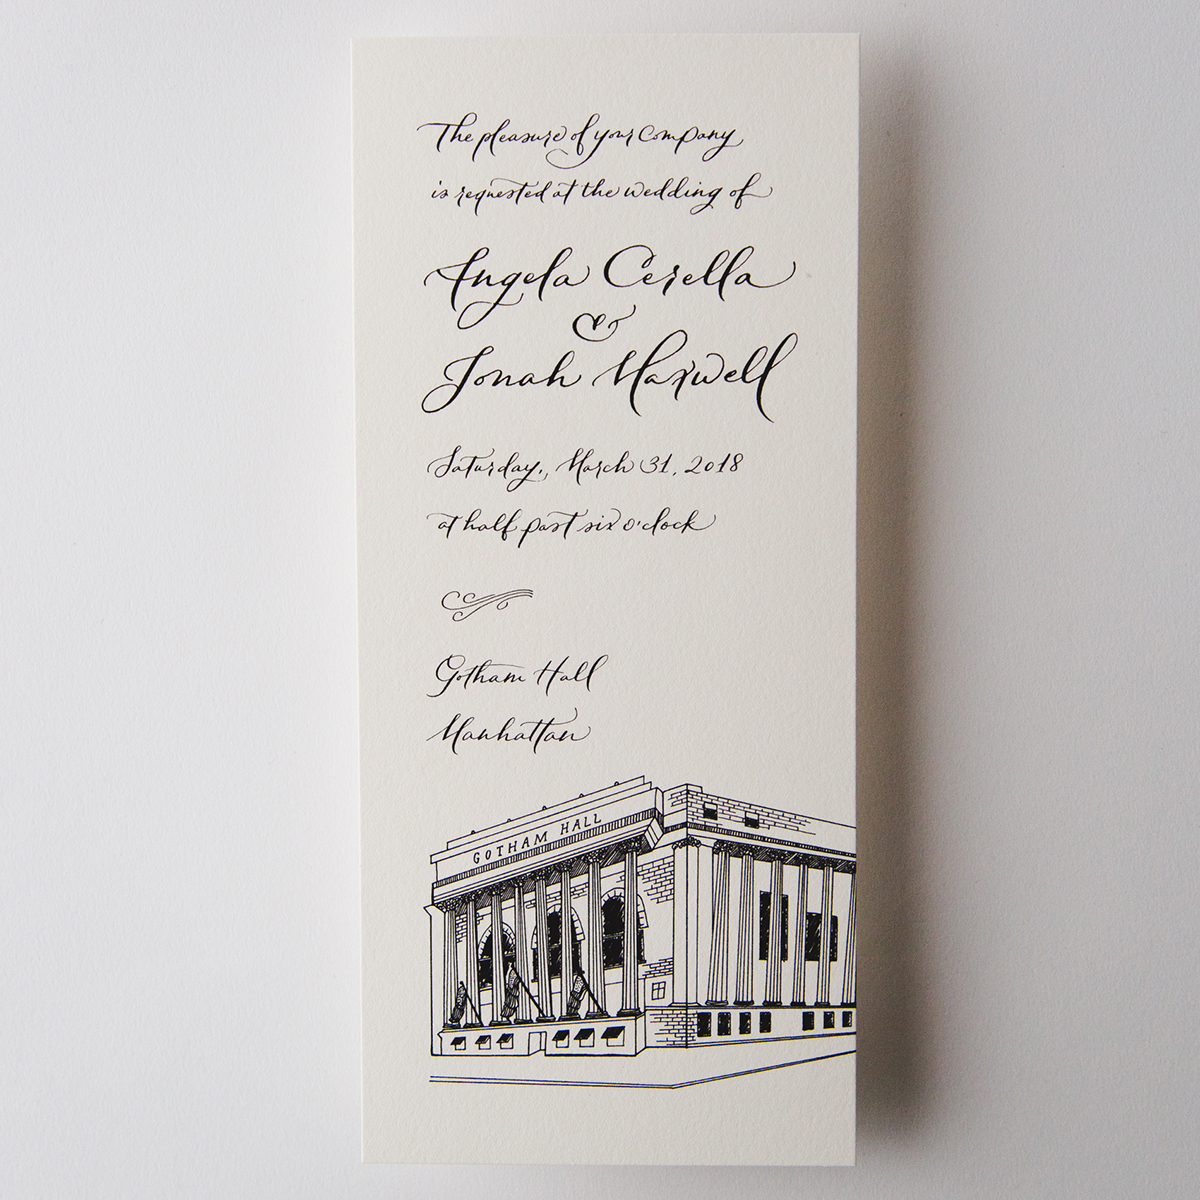 The pleasure of your company
is requested at the wedding of
Angela Cerella
&
Jonah Maxwell
Saturday, March 31, 2018
at half past six o'clock
Gotham Hall
Manhattan
GOTHAM HALL